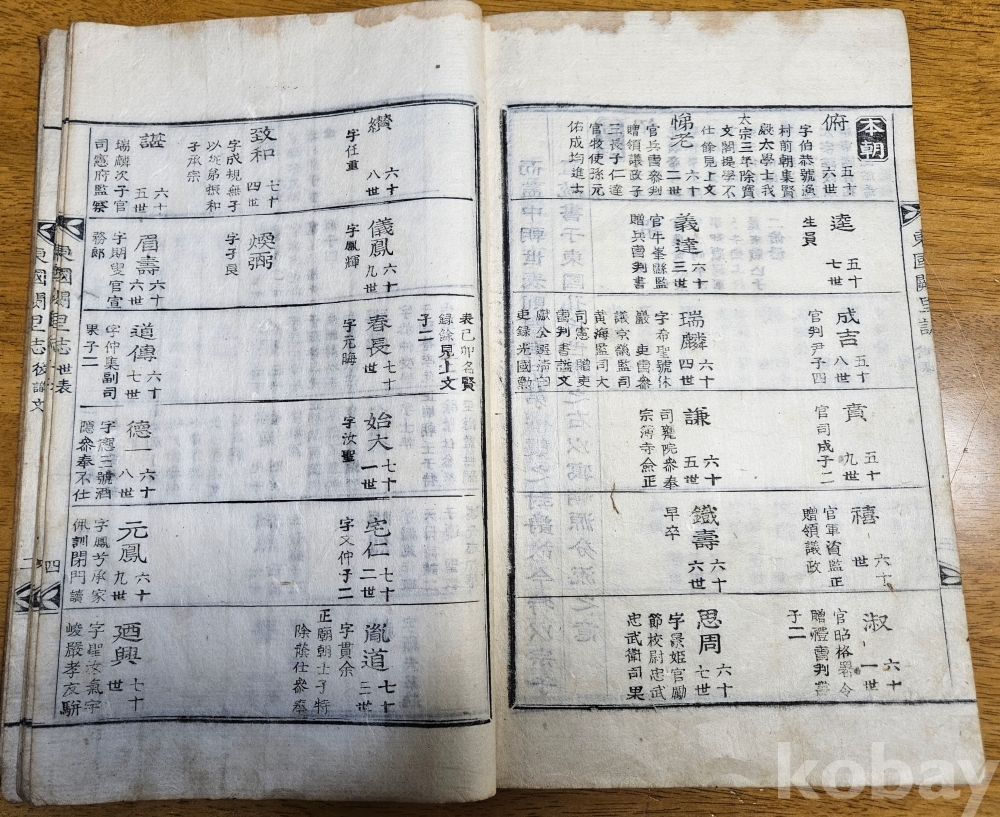 本朝
俯 五十六世
字伯恭號漁
村前朝集賢
殿太學士我
太宗三年除寶
文閣提學不
仕餘見上文
逵 五十七世
生員
成吉 五十八世
官判尹子四
賁 五十九世
官司成子二
禧 六十世
官軍資監正
贈領議政
淑 六十一世
官昭格署令
贈禮曹判書
子二
悌老 六十二世
官兵曹參判
贈領議政子
三長子仁達
官牧使孫元
佑成均進士
義達 六十三世
官牛峯縣監
贈兵曹判書
瑞麟 六十四世
字希聖號休
巖 吏曹參
議京畿監司
黃海監司大
司憲 贈吏
曹判書諡文
獻公選清白
吏錄光國勳
表己卯名賢
錄餘見上文
子二
謙 六十五世
司饔院參奉
宗簿寺僉正
鐵壽 六十六世
早卒
思周 六十七世
字景姬官勵
節校尉忠武
忠武衛司果
纘 六十八世
字任重
儀鳳 六十九世
字鳳輝
春長 七十世
字元晦
始大 七十一世
字汝聖
宅仁 七十二世
字文仲子二
胤道 七十三世
字貫余
正廟朝上子特
除蔭仕參奉
致和 七十四世
字成規無子
以從弟振和
子承宗
煥弼
字子良
諶 六十五世
瑞麟次子官
司憲府監察
眉壽 六十六世
字期叟官宣
務郎
道傳 六十七世
字仲集副司
果子二
德一 六十八世
字應三號酒
隱參奉不仕
元鳳 六十九世
字鳳兮承家
佩訓閉門讀
廼興 七十世
字聖汝氣宇
峻嚴孝友騈
東國闕里志 世表
四
東國闕里志